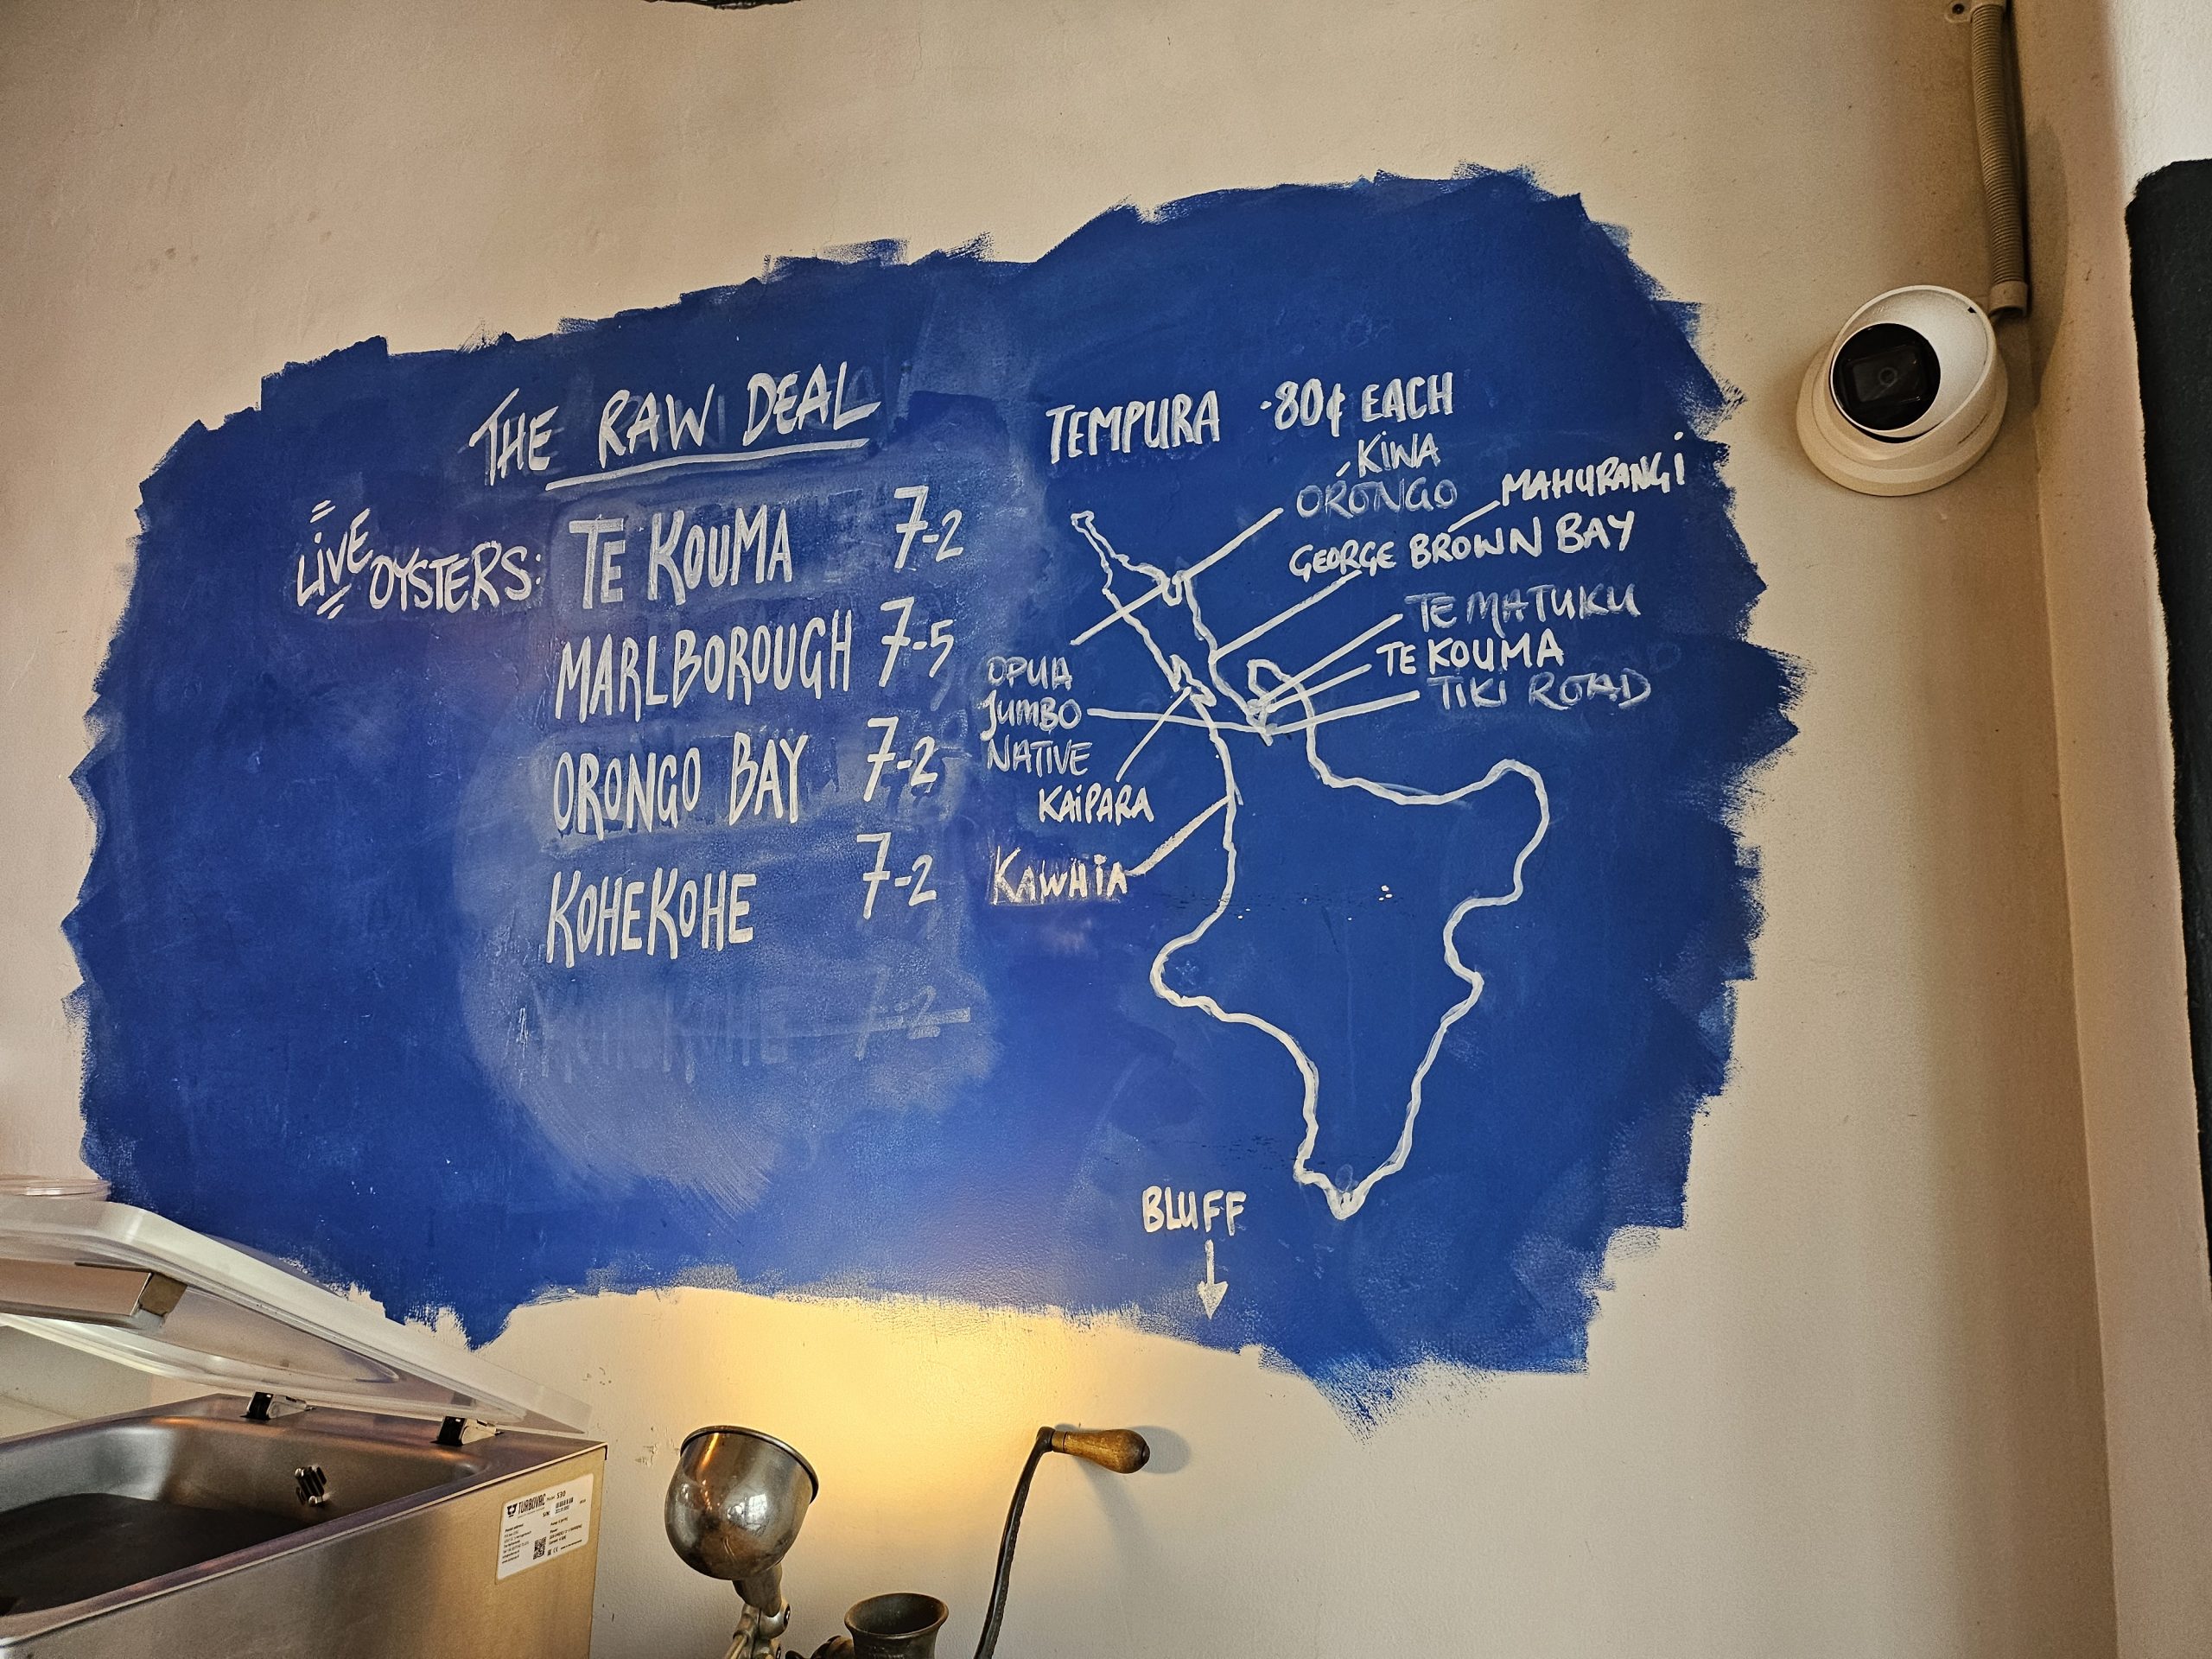 THE RAW DEAL
LIVE OYSTERS:
TE KOUMA 7-2
MARLBOROUGH 7-5
ORONGO BAY 7-2
KOHEKOHE 7-2
7-2
TEMPURA -80¢ EACH
KIWA
ORONGO
MAHURANGI
GEORGE BROWN BAY
TE MATUKU
TE KOUMA
TIKI ROAD
OPUA
JUMBO
NATIVE
KAIPARA
KAWHIA
BLUFF
TURBOVAC